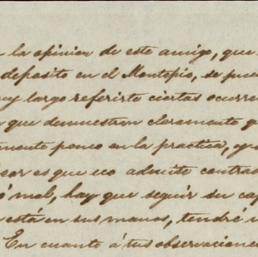 la opinion de este amigo, que
deposito en el Montepio, se pue
uy largo referirte ciertas ocurre
que demuestran claramente q
mente poneo en la practica, y
sor es que eco admite contras
ó mal, hay que seguir su ca
está en sus manos, tendré
En cuanto á tus observacione